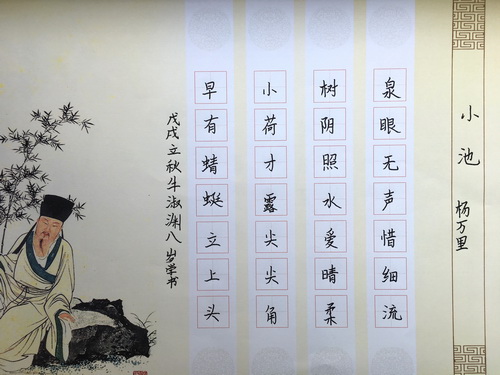 小池
杨万里
泉眼无声惜细流
树阴照水爱晴柔
小荷才露尖尖角
早有蜻蜓立上头
戊戌立秋牛淑渊八岁学书